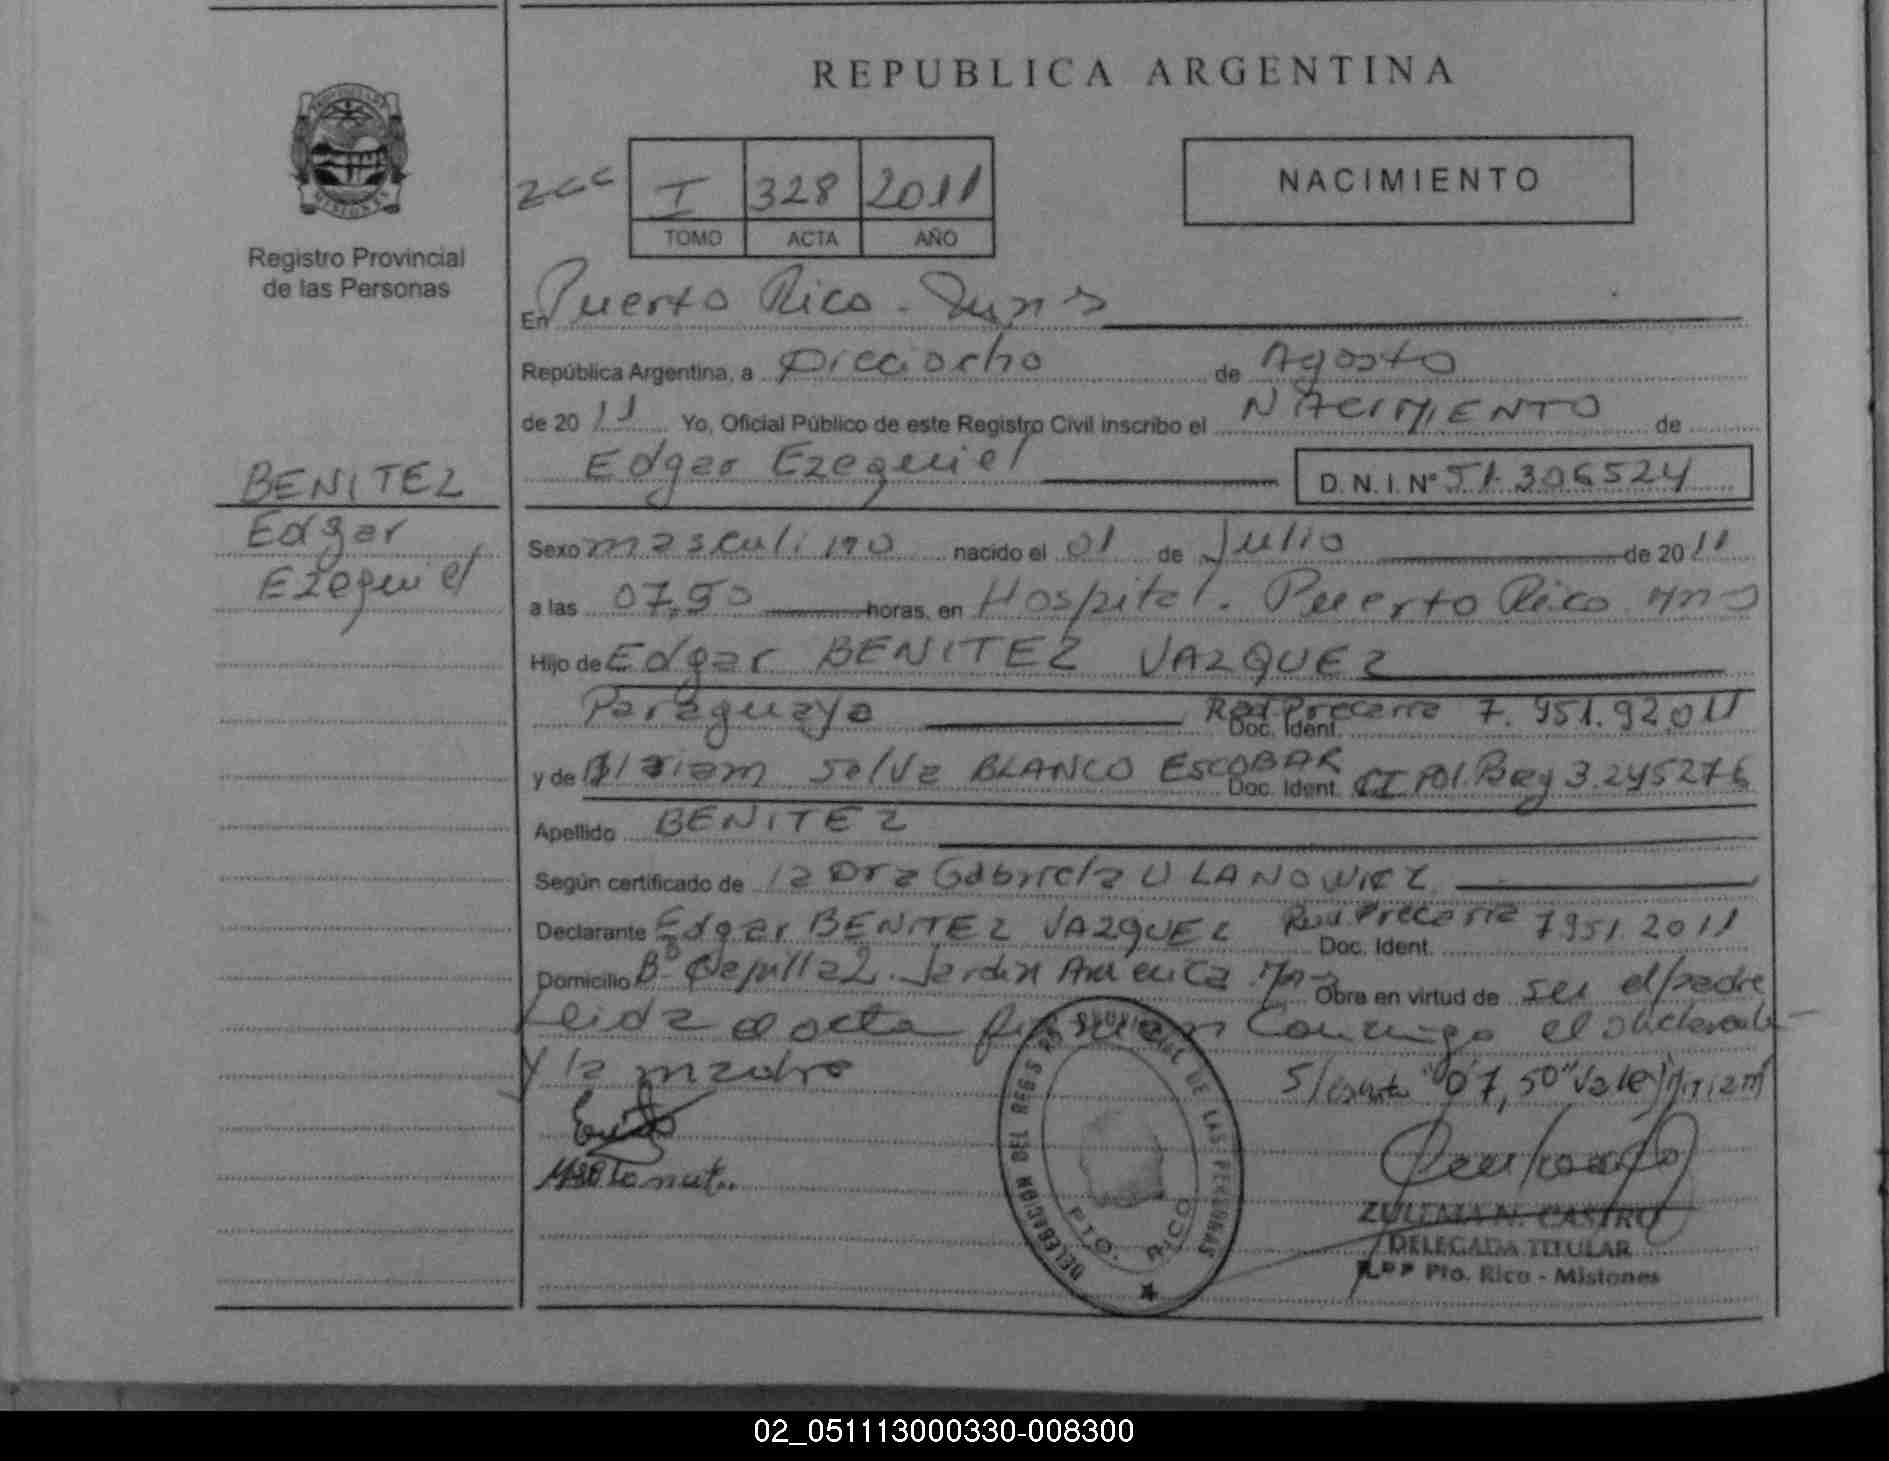 REPUBLICA ARGENTINA
NACIMIENTO
I 328 2011
TOMO ACTA AÑO
Registro Provincial
de las Personas
En Puerto Rico -
República Argentina, a Dieciocho de Agosto
de 2011 Yo, Oficial Público de este Registro Civil inscribo el NACIMIENTO de
Edgar Ezequiel D.N.I. Nº 51.306524
BENITEZ
Edgar
Ezequiel
Sexo masculino nacido el 01 de Julio de 2011
a las 07,50 horas, en Hospital. Puerto Rico Mns
Hijo de Edgar BENITEZ VAZQUEZ
Paraguayo Doc. Ident. Rad. Precaria 7.951.92011
y de Miriam Selva BLANCO ESCOBAR Doc. Ident. CI Pol. Pay 3.245276
Apellido BENITEZ
Según certificado de la Dra Gabriela ULANOWICZ
Declarante Edgar BENITEZ VAZQUEZ Doc. Ident. Rad. Precaria 7951.2011
Domicilio Bº Jardin America Mns Obra en virtud de ser el padre
Leida el acta firman Conmigo el declarante
y la madre
S/ "07,50" Vale Miriam
DELEGACION DEL REGISTRO PROVINCIAL DE LAS PERSONAS
PTO. RICO
ZULEMA N. CASTRO
DELEGADA TITULAR
R.P.P Pto. Rico - Misiones
02_051113000330-008300